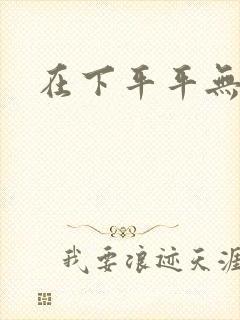 在下平平無
我要浪迹天涯